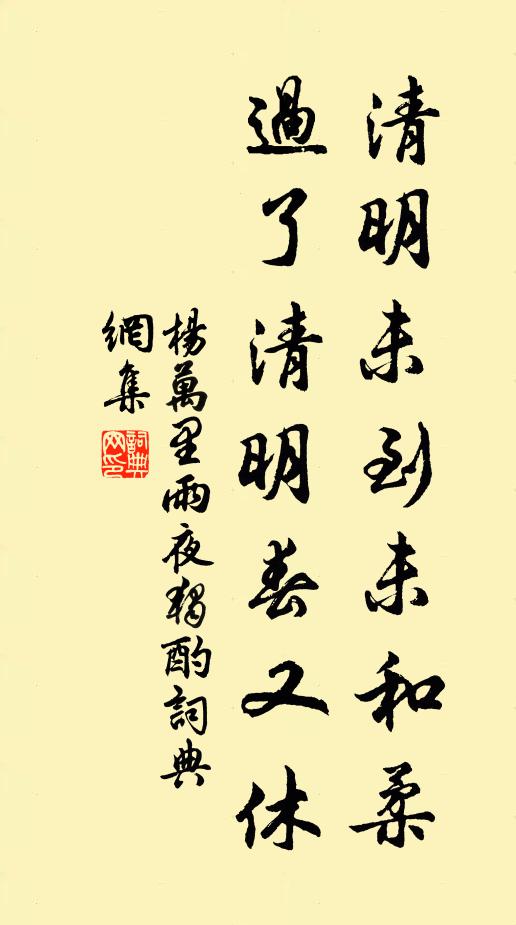 清明未到未和柔
過了清明春又休
楊萬里雨夜獨酌詞典
網集
詞典網印